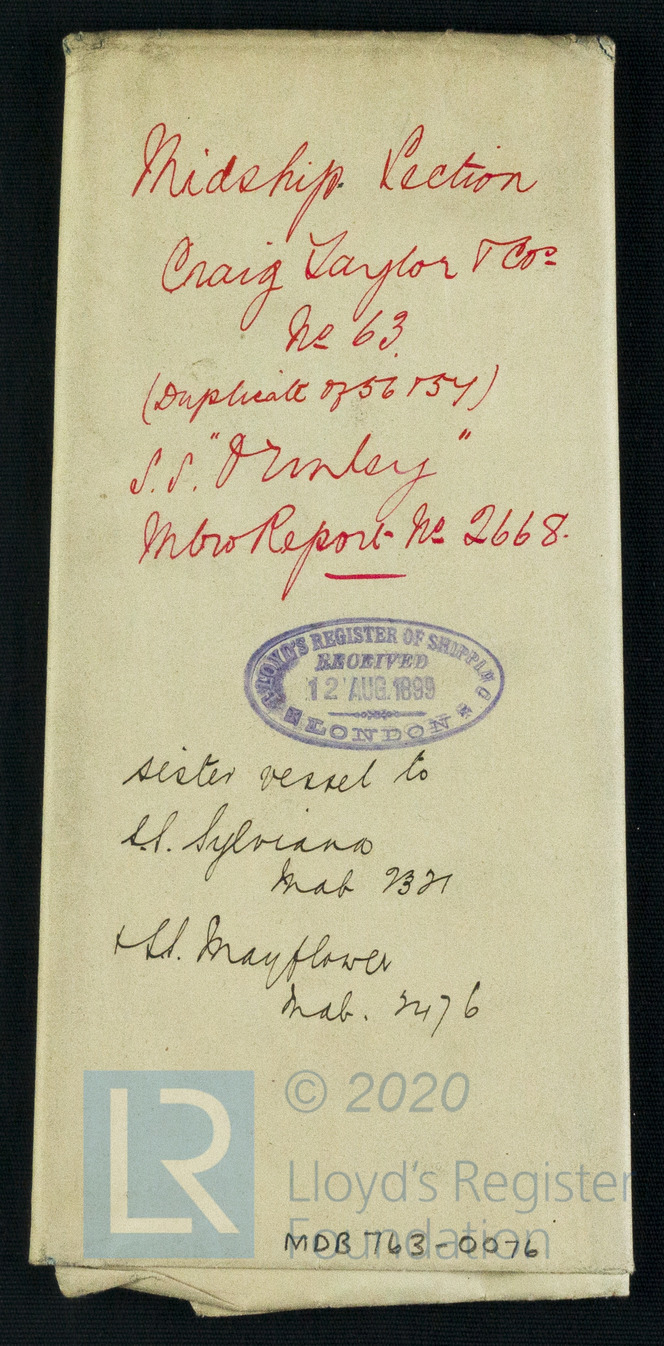 Midship Section
Craig Taylor & Cos
No 63
(Duplicate of 56 & 57)
S.S. "Ormley"
Mbro Report No 2668.
LLOYD'S REGISTER OF SHIPPING
RECEIVED
12 AUG. 1899
LONDON
sister vessel to
S.S. Sylviana
Mab 2321
+ S.S. Mayflower
Mab. 2476
LR
© 2020
Lloyd's Register
Foundation
MDB 763-0076